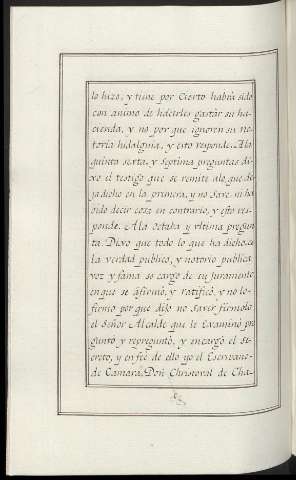 lo hizo, y tiene por Cierto habria sido
con animo de hacerles gastar su ha-
cienda, y no por que ignoren su no-
toria hidalguia, y esto responde. A la
quinta sexta, y septima preguntas di-
xo el testigo que se remite a lo que de-
ja dicho en la primera, y no save, ni ha
oido decir cosa en contrario, y esto res-
ponde. A la Octaba y ultima pregun-
ta. Dixo que todo lo que ha dicho es
la verdad publico, y notorio publica
voz y fama so cargo de su Juramento
en que se afirmó, y ratificó, y no lo
firmo por que dijo no saver firmolo
el Señor Alcalde que le Examinó pre
guntó y repreguntó, y encargó el se-
creto, y en feè de ello yo el Escrivano
de Camara, Don Christoval de Cha-